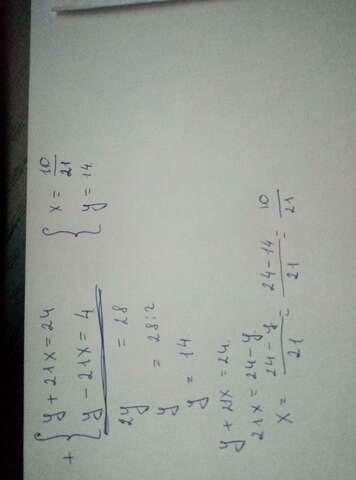 + { y + 21x = 24
y - 21x = 4
2y = 28
y = 28:2
y = 14
y + 21x = 24
21x = 24 - y
x = \frac{24 - y}{21} = \frac{24 - 14}{21} = \frac{10}{21}
{ x = \frac{10}{21}
y = 14